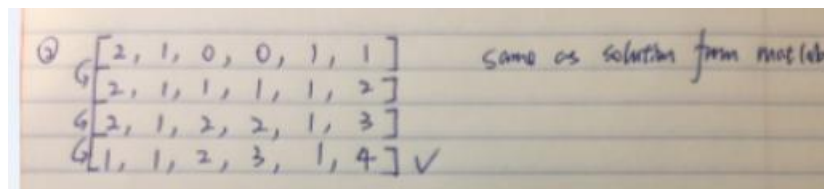 ② [2, 1, 0, 0, 1, 1] same as solution from matlab
G [2, 1, 1, 1, 1, 2]
G [2, 1, 2, 2, 1, 3]
G [1, 1, 2, 3, 1, 4] ✓